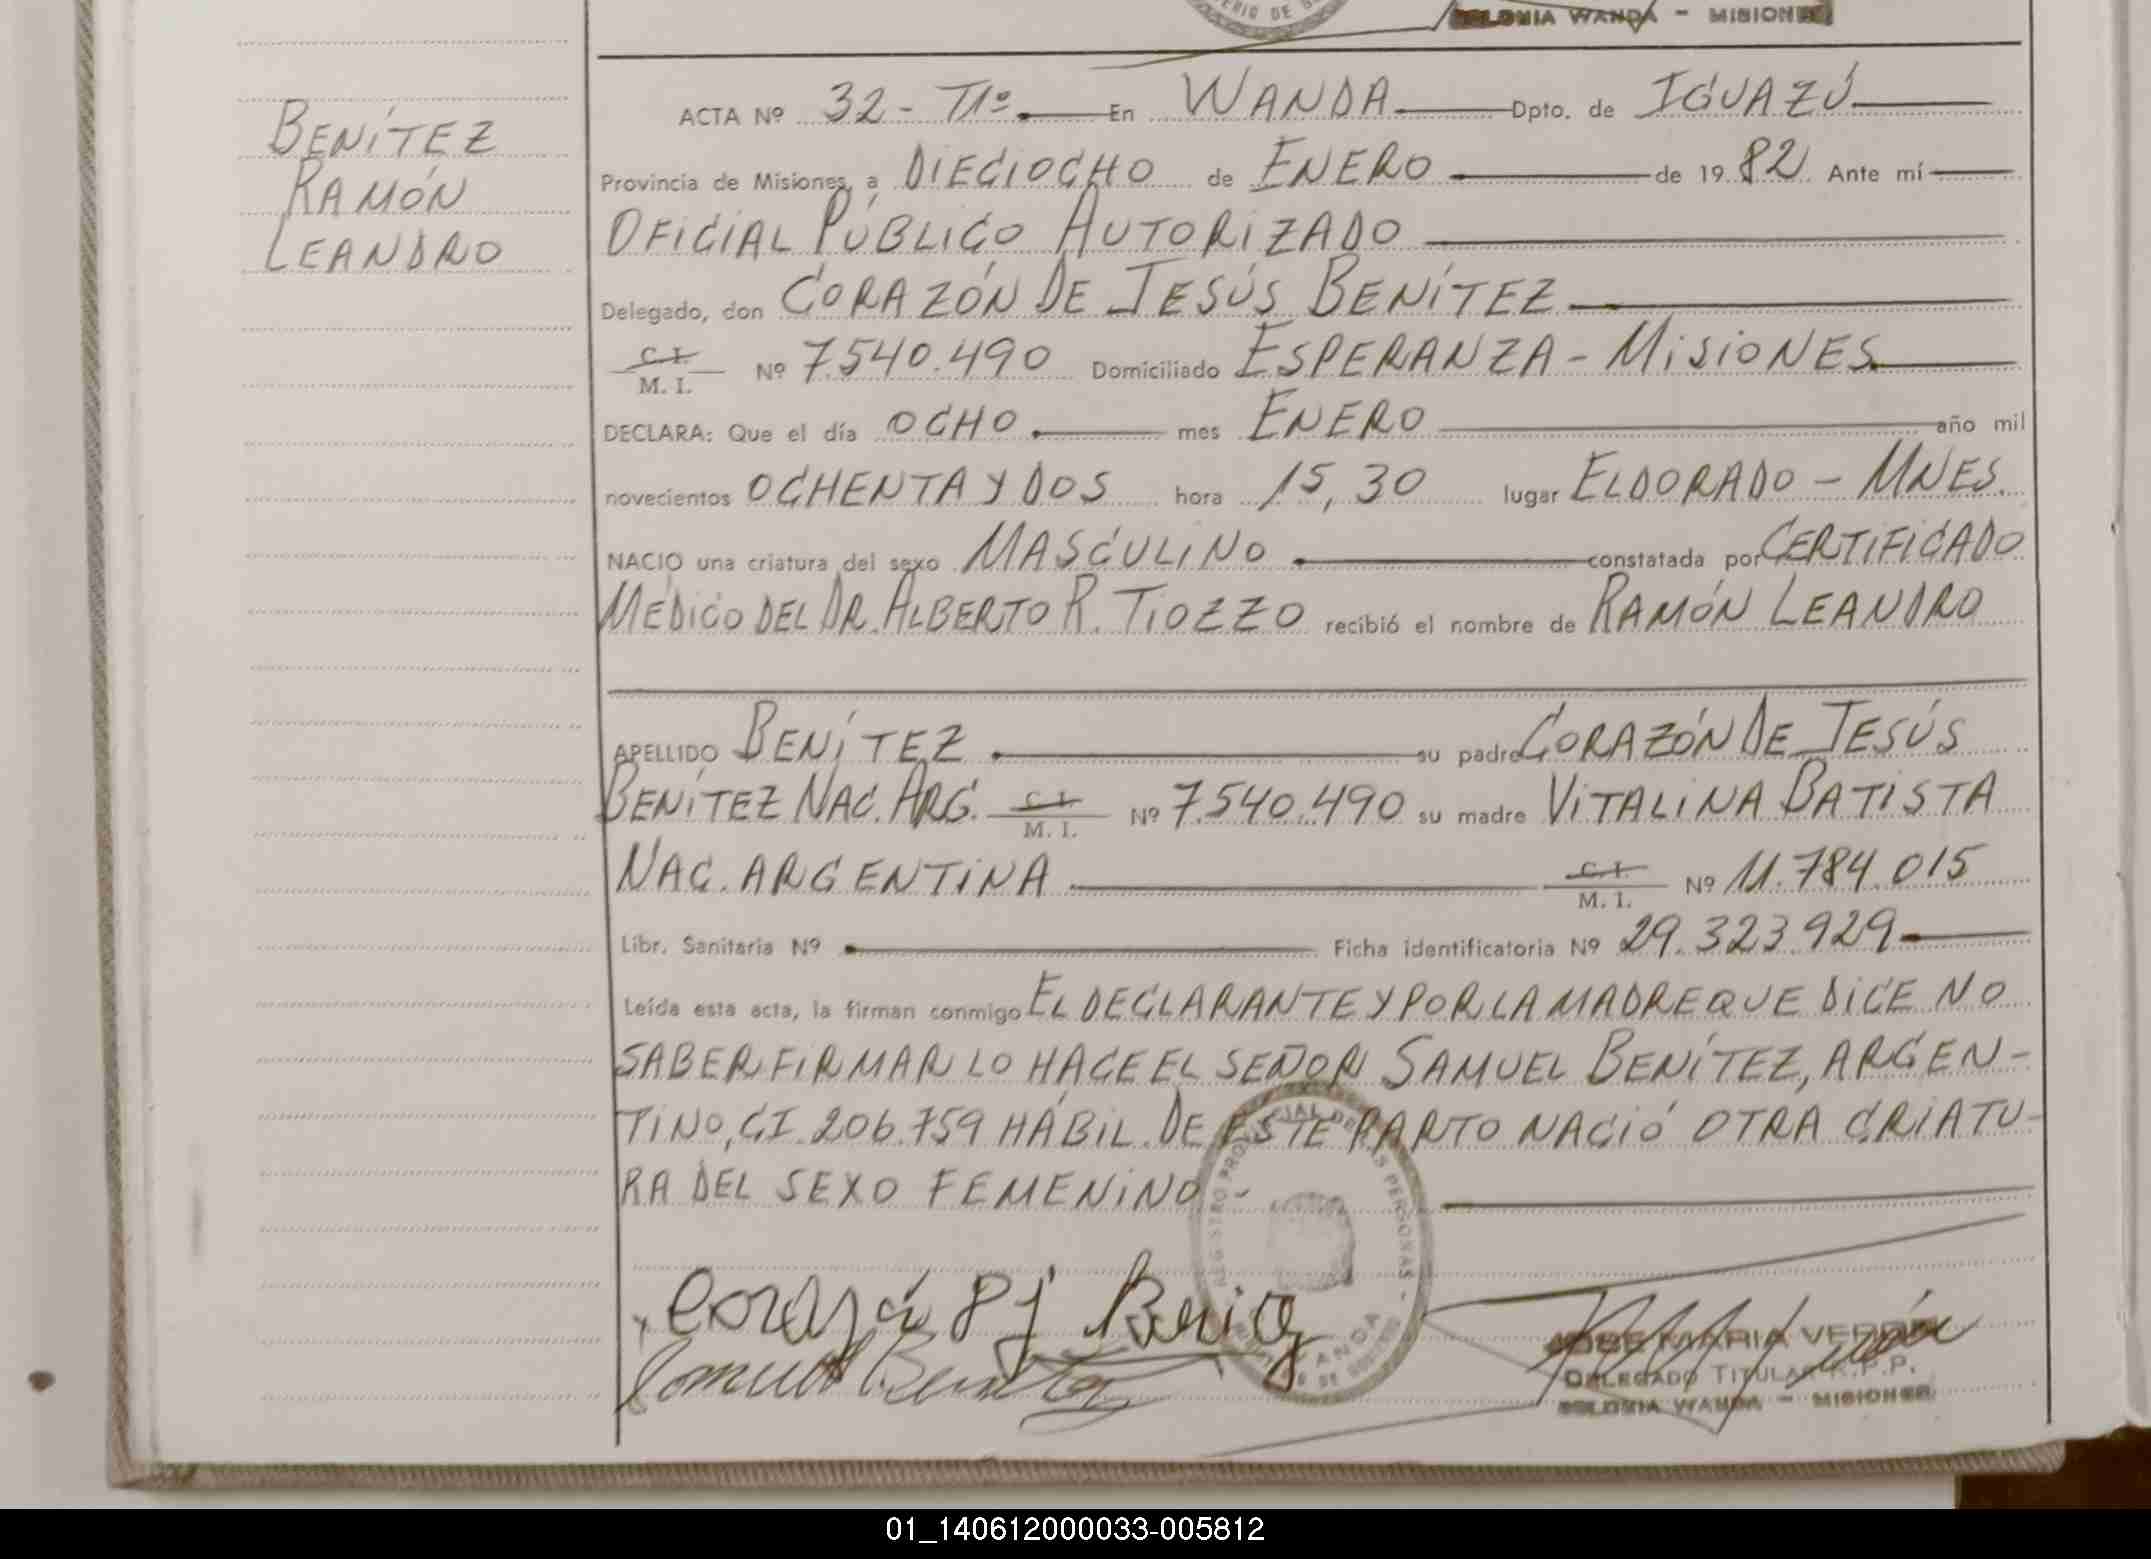 COLONIA WANDA - MISIONES
BENÍTEZ
RAMÓN
LEANDRO
ACTA Nº 32 - Tº En WANDA Dpto. de IGUAZÚ
Provincia de Misiones, a DIECIOCHO de ENERO de 1982 Ante mí
OFICIAL PÚBLICO AUTORIZADO
Delegado, don CORAZÓN DE JESÚS BENÍTEZ
C.I. / M. I. Nº 7.540.490 Domiciliado ESPERANZA - MISIONES
DECLARA: Que el día OCHO mes ENERO año mil
novecientos OCHENTA Y DOS hora 15,30 lugar ELDORADO - MNES.
NACIO una criatura del sexo MASCULINO constatada por CERTIFICADO
MÉDICO DEL DR. ALBERTO R. TIOZZO recibió el nombre de RAMÓN LEANDRO
APELLIDO BENÍTEZ su padre CORAZÓN DE JESÚS
BENÍTEZ NAC. ARG. C.I. / M. I. Nº 7.540.490 su madre VITALINA BATISTA
NAC. ARGENTINA C.I. / M. I. Nº 11.784.015
Libr. Sanitaria Nº Ficha identificatoria Nº 29.323.929
Leída esta acta, la firman conmigo EL DECLARANTE Y POR LA MADRE QUE DICE NO
SABER FIRMAR LO HACE EL SEÑOR SAMUEL BENÍTEZ, ARGEN-
TINO, CI. 206.759 HÁBIL. DE ESTE PARTO NACIÓ OTRA CRIATU-
RA DEL SEXO FEMENINO
REGISTRO PROVINCIAL DE LAS PERSONAS
WANDA
Samuel Benitez
JOSE MARIA VERON
DELEGADO TITULAR R.P.P.
COLONIA WANDA - MISIONES
01_140612000033-005812